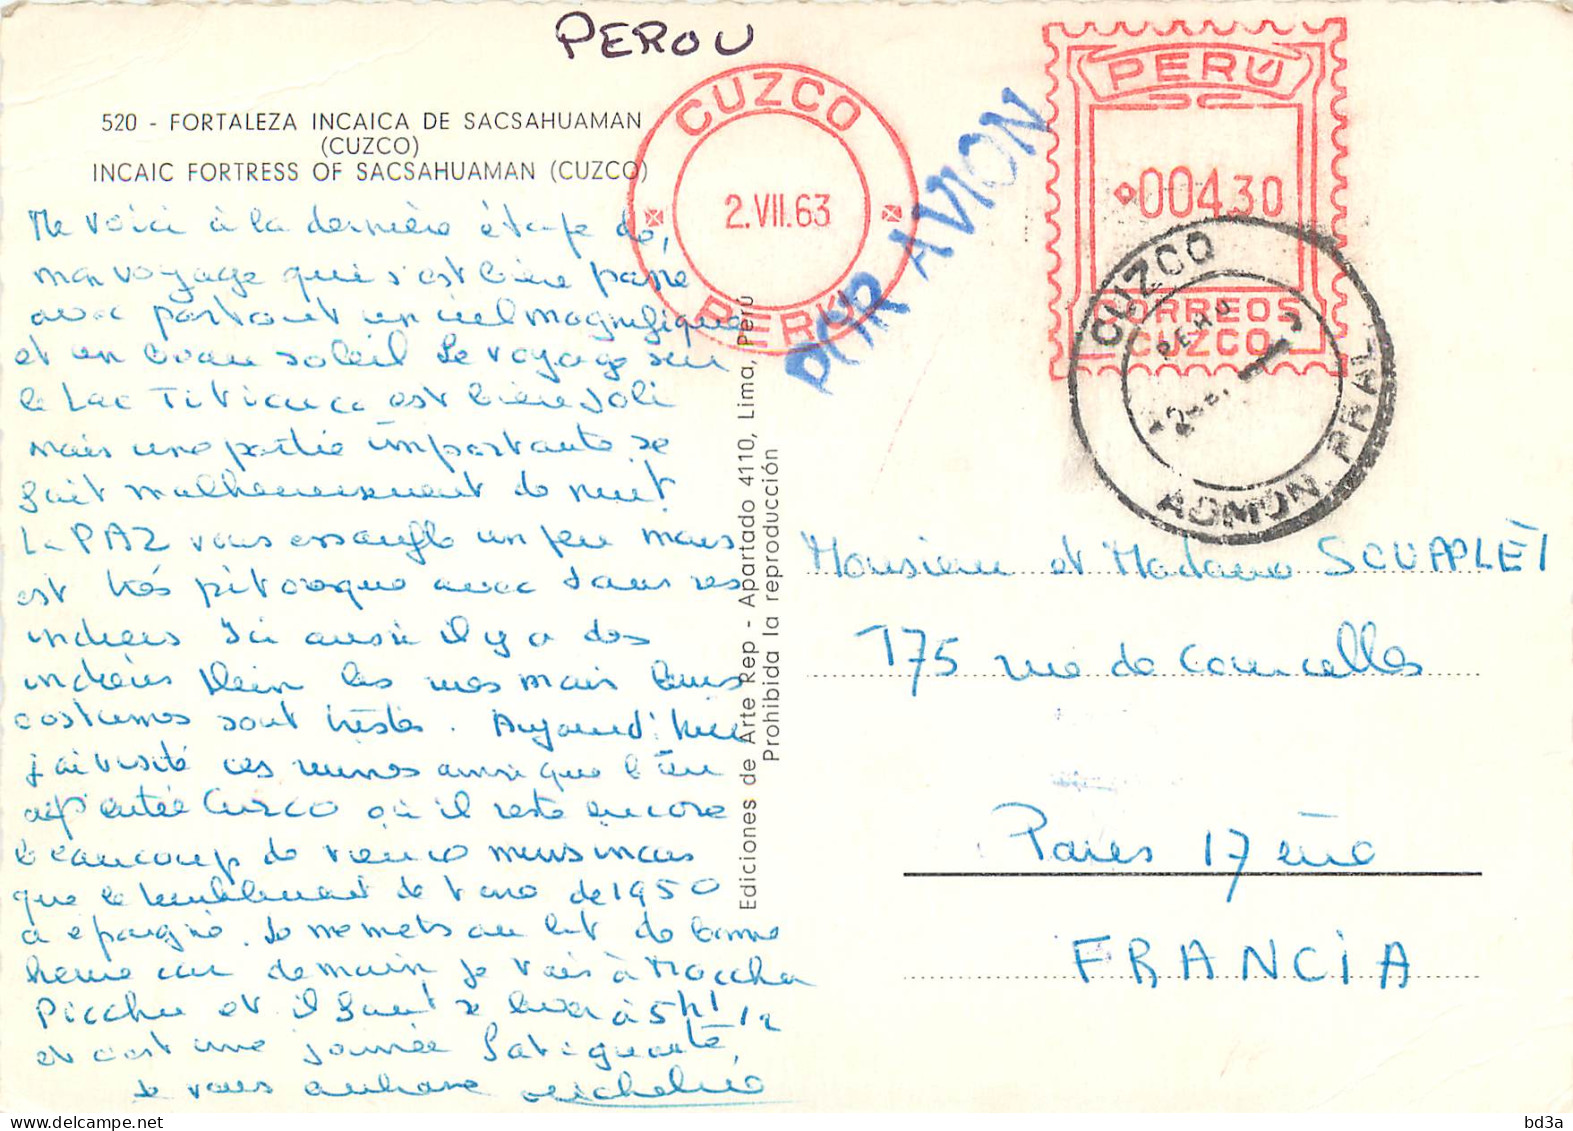 PEROU
520 - FORTALEZA INCAICA DE SACSAHUAMAN
(CUZCO)
INCAIC FORTRESS OF SACSAHUAMAN (CUZCO)
CUZCO
2.VII.63
PERU
POR AVION
PERÚ
00430
CORREOS
CUZCO
CUZCO
PERU
ADMON. PRAL.
Me voici à la dernière étape de
mon voyage qui s'est bien passé
avec partout un ciel magnifique
et un beau soleil Le voyage sur
le Lac Titicaca est bien joli
mais une partie importante se
fait malheureusement de nuit
La PAZ vous essouffle un peu mais
est très pittoresque avec tous ses
indiens Ici aussi il y a des
indiens plein les rues mais leurs
costumes sont tristes. Aujourd'hui
j'ai visité ces ruines ainsi que
Cuzco où il reste encore
beaucoup de murs incas
que le tremblement de terre de 1950
a épargné. Je me mets au lit de bonne
heure car demain je vais à Macchu
Picchu et il faut se lever à 5h 1/2
et c'est une journée fatigante
Je vous embrasse Micheline
Ediciones de Arte Rep - Apartado 4110, Lima, Perú
Prohibida la reproducción
Monsieur et Madame
175 rue de Courcelles
Paris 17 ème
FRANCIA
bd3a